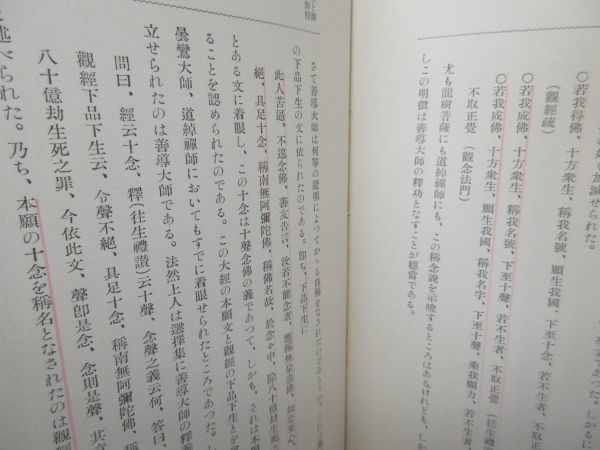 〇若我得佛、十方衆生、稱我名號、願生我國、下至十念、若不生者、
（觀經疏）
〇若我成佛、十方衆生、稱我名號、下至十聲、若不生者、不取正覺（往生禮
〇若我成佛、十方衆生、願生我國、稱我名字、下至十聲、乘我願力、若不生者、
不取正覺（觀念法門）
尤も龍樹菩薩にも道綽禪師にも、この稱念說を示唆するところはあるけれども、しか
し、この明徵は善導大師の釋功となすことが穩當である。
さて善導大師は何等の證明によつてか
の下品下生の文に依られたのである。卽ち、下品下生に
此人苦逼、不遑念佛、善友告言、汝若不能念者、應稱無量壽佛、如是至心、
絕、具足十念、稱南無阿彌陀佛、稱佛名故、於念々中、除八十億劫生死
とある文に着眼し、この十念は十聲念佛の義であつて、しかも、それは本願
ることを認められたのである。この大經の本願文と觀經の下品下生とを
曇鸞大師、道綽禪師においてもすでに着眼せられたところであつた。し
立せられたのは善導大師である。法然上人は選擇集に善導大師の釋義
問曰、經云十念、釋（往生禮讃）云十聲、念聲之義云何、答曰、
觀經下品下生云、令聲不絕、具足十念、稱南無阿彌陀佛、稱
八十億劫生死之罪、今依此文、聲卽是念、念則是聲、其意
と述べられた。乃ち、本願の十念を稱名となされたのは觀經